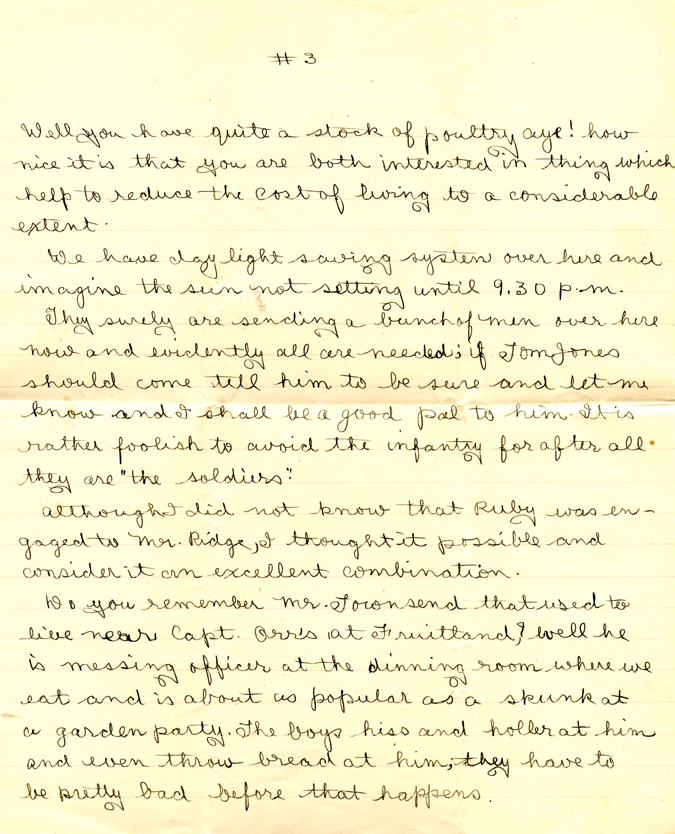 # 3
Well you have quite a stock of poultry aye! how
nice it is that you are both interested in thing which
help to reduce the cost of living to a considerable
extent.
We have day light saving system over here and
imagine the sun not setting until 9.30 p.m.
They surely are sending a bunch of men over here
now and evidently all are needed; if Tom Jones
should come tell him to be sure and let me
know and I shall be a good pal to him. It is
rather foolish to avoid the infantry for after all
they are "the soldiers".
Although I did not know that Ruby was en-
gaged to Mr. Ridge, I thought it possible and
consider it an excellent combination.
Do you remember Mr. Townsend that used to
live near Capt. Orr's at Fruitland? Well he
is messing officer at the dinning room where we
eat and is about as popular as a skunk at
a garden party. The boys hiss and holler at him
and even throw bread at him; they have to
be pretty bad before that happens.